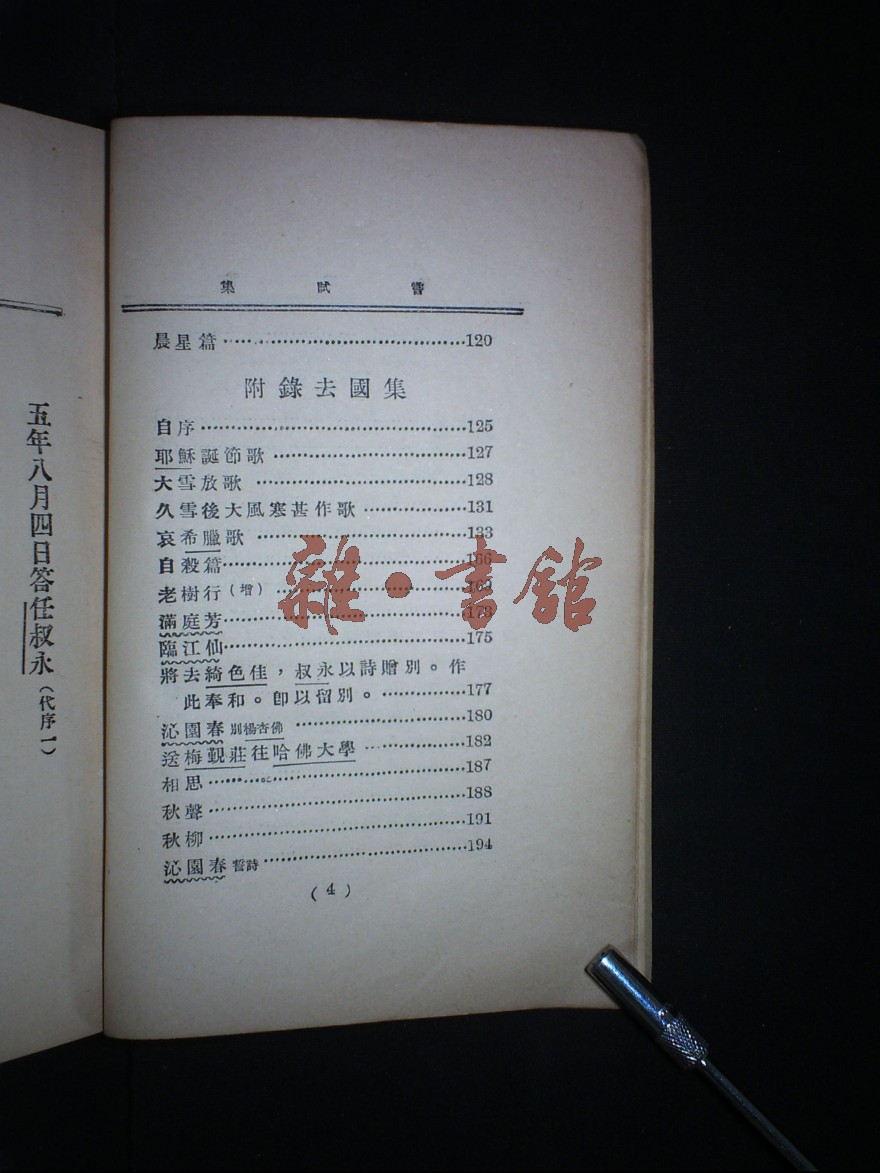 集 試 嘗
晨星篇 120
附錄去國集
自序 125
耶穌誕節歌 127
大雪放歌 128
久雪後大風寒甚作歌 131
哀希臘歌 133
自殺篇 166
老樹行（增）
滿庭芳 173
臨江仙 175
將去綺色佳，叔永以詩贈別。作
此奉和。卽以留別。 177
沁園春 別楊杏佛 180
送梅覲莊往哈佛大學 182
相思 187
秋聲 188
秋柳 191
沁園春 誓詩 194
(4)
五年八月四日答任叔永（代序一）
雜·書館